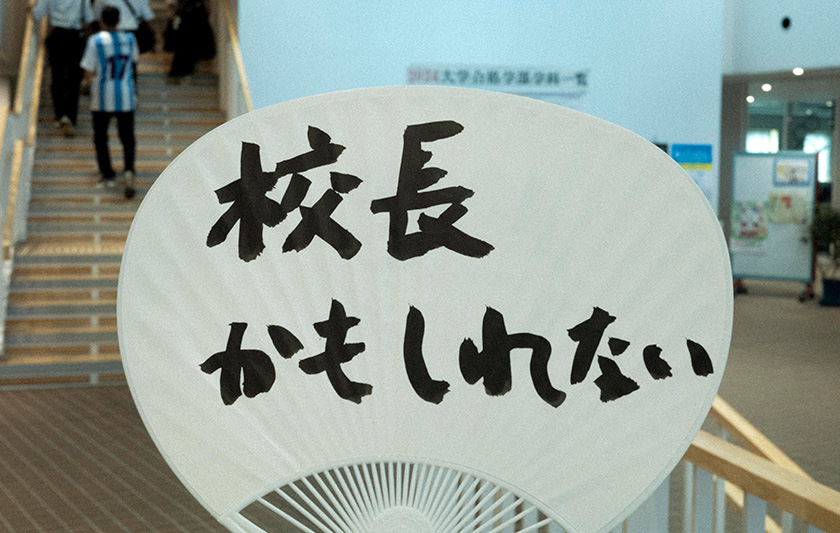 17
2024大学合格学部学科一覧
校長
かもしれない